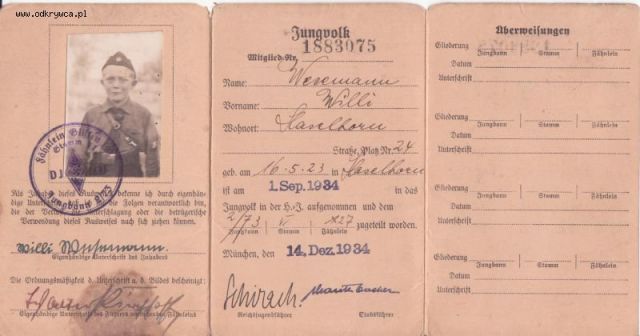 www.odkrywca.pl
Fähnlein
Stamm
DJ
Jungbann
Als Inhaber dieses Ausweises bekenne ich durch eigenhän-
dige Unterschrift
Folgen verantwortlich bin,
die der Verlust, die Unterschlagung oder die betrügerische
Verwendung dieses Ausweises nach sich ziehen können.
Willi Wesemann.
Eigenhändige Unterschrift des Inhabers
Die Ordnungsmäßigkeit d. Unterschrift u. d. Bildes bescheinigt:
Eigenhändige Unterschrift des Führers
Jungvolk
Mitglied-Nr. 1883075
Name: Wesemann
Vorname: Willi
Wohnort: Haselhorn
Straße, Platz Nr. 24
geb. am 16.5.23 in Haselhorn
ist am 1. Sep. 1934 in das
Jungvolk in der H.J. aufgenommen und dem
2/73 V 127 zugeteilt worden.
Jungbann Stamm Fähnlein
München, den 14. Dez. 1934
Schirach.
Reichsjugendführer Stabsführer
Überweisungen
Gliederung
Jungbann Stamm Fähnlein
Datum
Unterschrift
Gliederung
Jungbann Stamm Fähnlein
Datum
Unterschrift
Gliederung
Jungbann Stamm Fähnlein
Datum
Unterschrift
Gliederung
Jungbann Stamm Fähnlein
Datum
Unterschrift